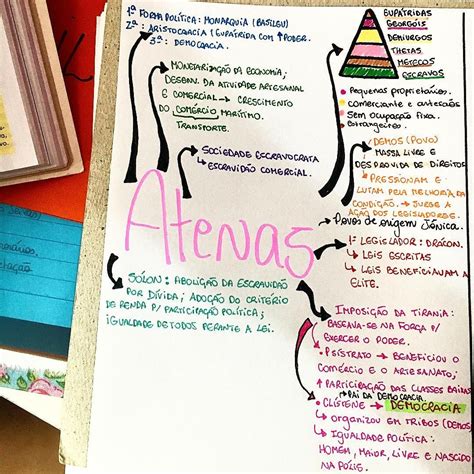 1ª FORMA POLÍTICA: MONARQUIA (BASILEU)
2ª: ARISTOCRACIA (EUPÁTRIDA COM ↑PODER.
3ª: DEMOCRACIA.
MONETARIZAÇÃO DA ECONOMIA;
DESENV. DA ATIVIDADE ARTESANAL
E COMERCIAL → CRESCIMENTO
DO COMÉRCIO MARÍTIMO.
TRANSPORTE.
SOCIEDADE ESCRAVOCRATA
↳ ESCRAVIDÃO COMERCIAL.
EUPÁTRIDAS
GEORGÓIS
DEMIURGOS
THETAS
METECOS
ESCRAVOS
• Pequenos proprietários.
• comerciante e artesãos
• Sem ocupação fixa.
• Estrangeiros.
• DEMOS (POVO)
MASSA LIVRE E
DESPROVIDA DE DIREITOS
↳ PRESSIONAM E
LUTAM PELA MELHORIA DA
CONDIÇÃO. → SURGE A
AÇÃO DOS LEGISLADORES.
Povos de origem Jônica.
Atenas
1º LEGISLADOR: DRÁCON.
↳ LEIS ESCRITAS
↳ LEIS BENEFICIAVAM A
ELITE.
SÓLON: ABOLIÇÃO DA ESCRAVIDÃO
POR DÍVIDA; ADOÇÃO DO CRITÉRIO
DE RENDA P/ PARTICIPAÇÃO POLÍTICA;
IGUALDADE DE TODOS PERANTE A LEI.
IMPOSIÇÃO DA TIRANIA:
BASEAVA-SE NA FORÇA P/
EXERCER O PODER.
• PSÍSTRATO → BENEFICIOU O
COMÉRCIO E O ARTESANATO;
↑ PARTICIPAÇÃO DAS CLASSES BAIXAS
↳ PAI DA DEMOCRACIA.
• CLÍSTENE → DEMOCRACIA
↳ ORGANIZOU EM TRIBOS (DEMOS
↳ IGUALDADE POLÍTICA:
HOMEM, MAIOR, LIVRE E NASCIDO
NA PÓLIS.